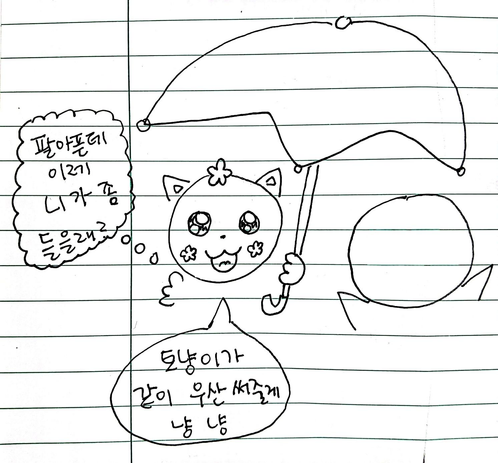 팔아푼데
이제
니가 좀
들을래로
도냥이가
같이 우산 써줄게
냥 냥